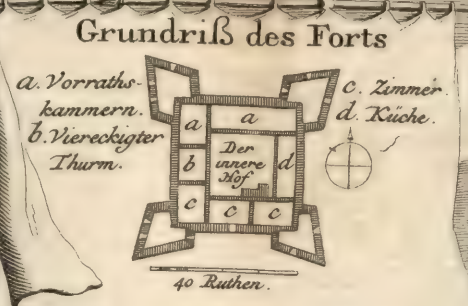 Grundriß des Forts
a. Vorraths-
kammern.
b. Viereckigter
Thurm.
c. Zimmer.
d. Küche.
a
a
b
Der
innere
Hof
d
c
c
c
40 Ruthen.